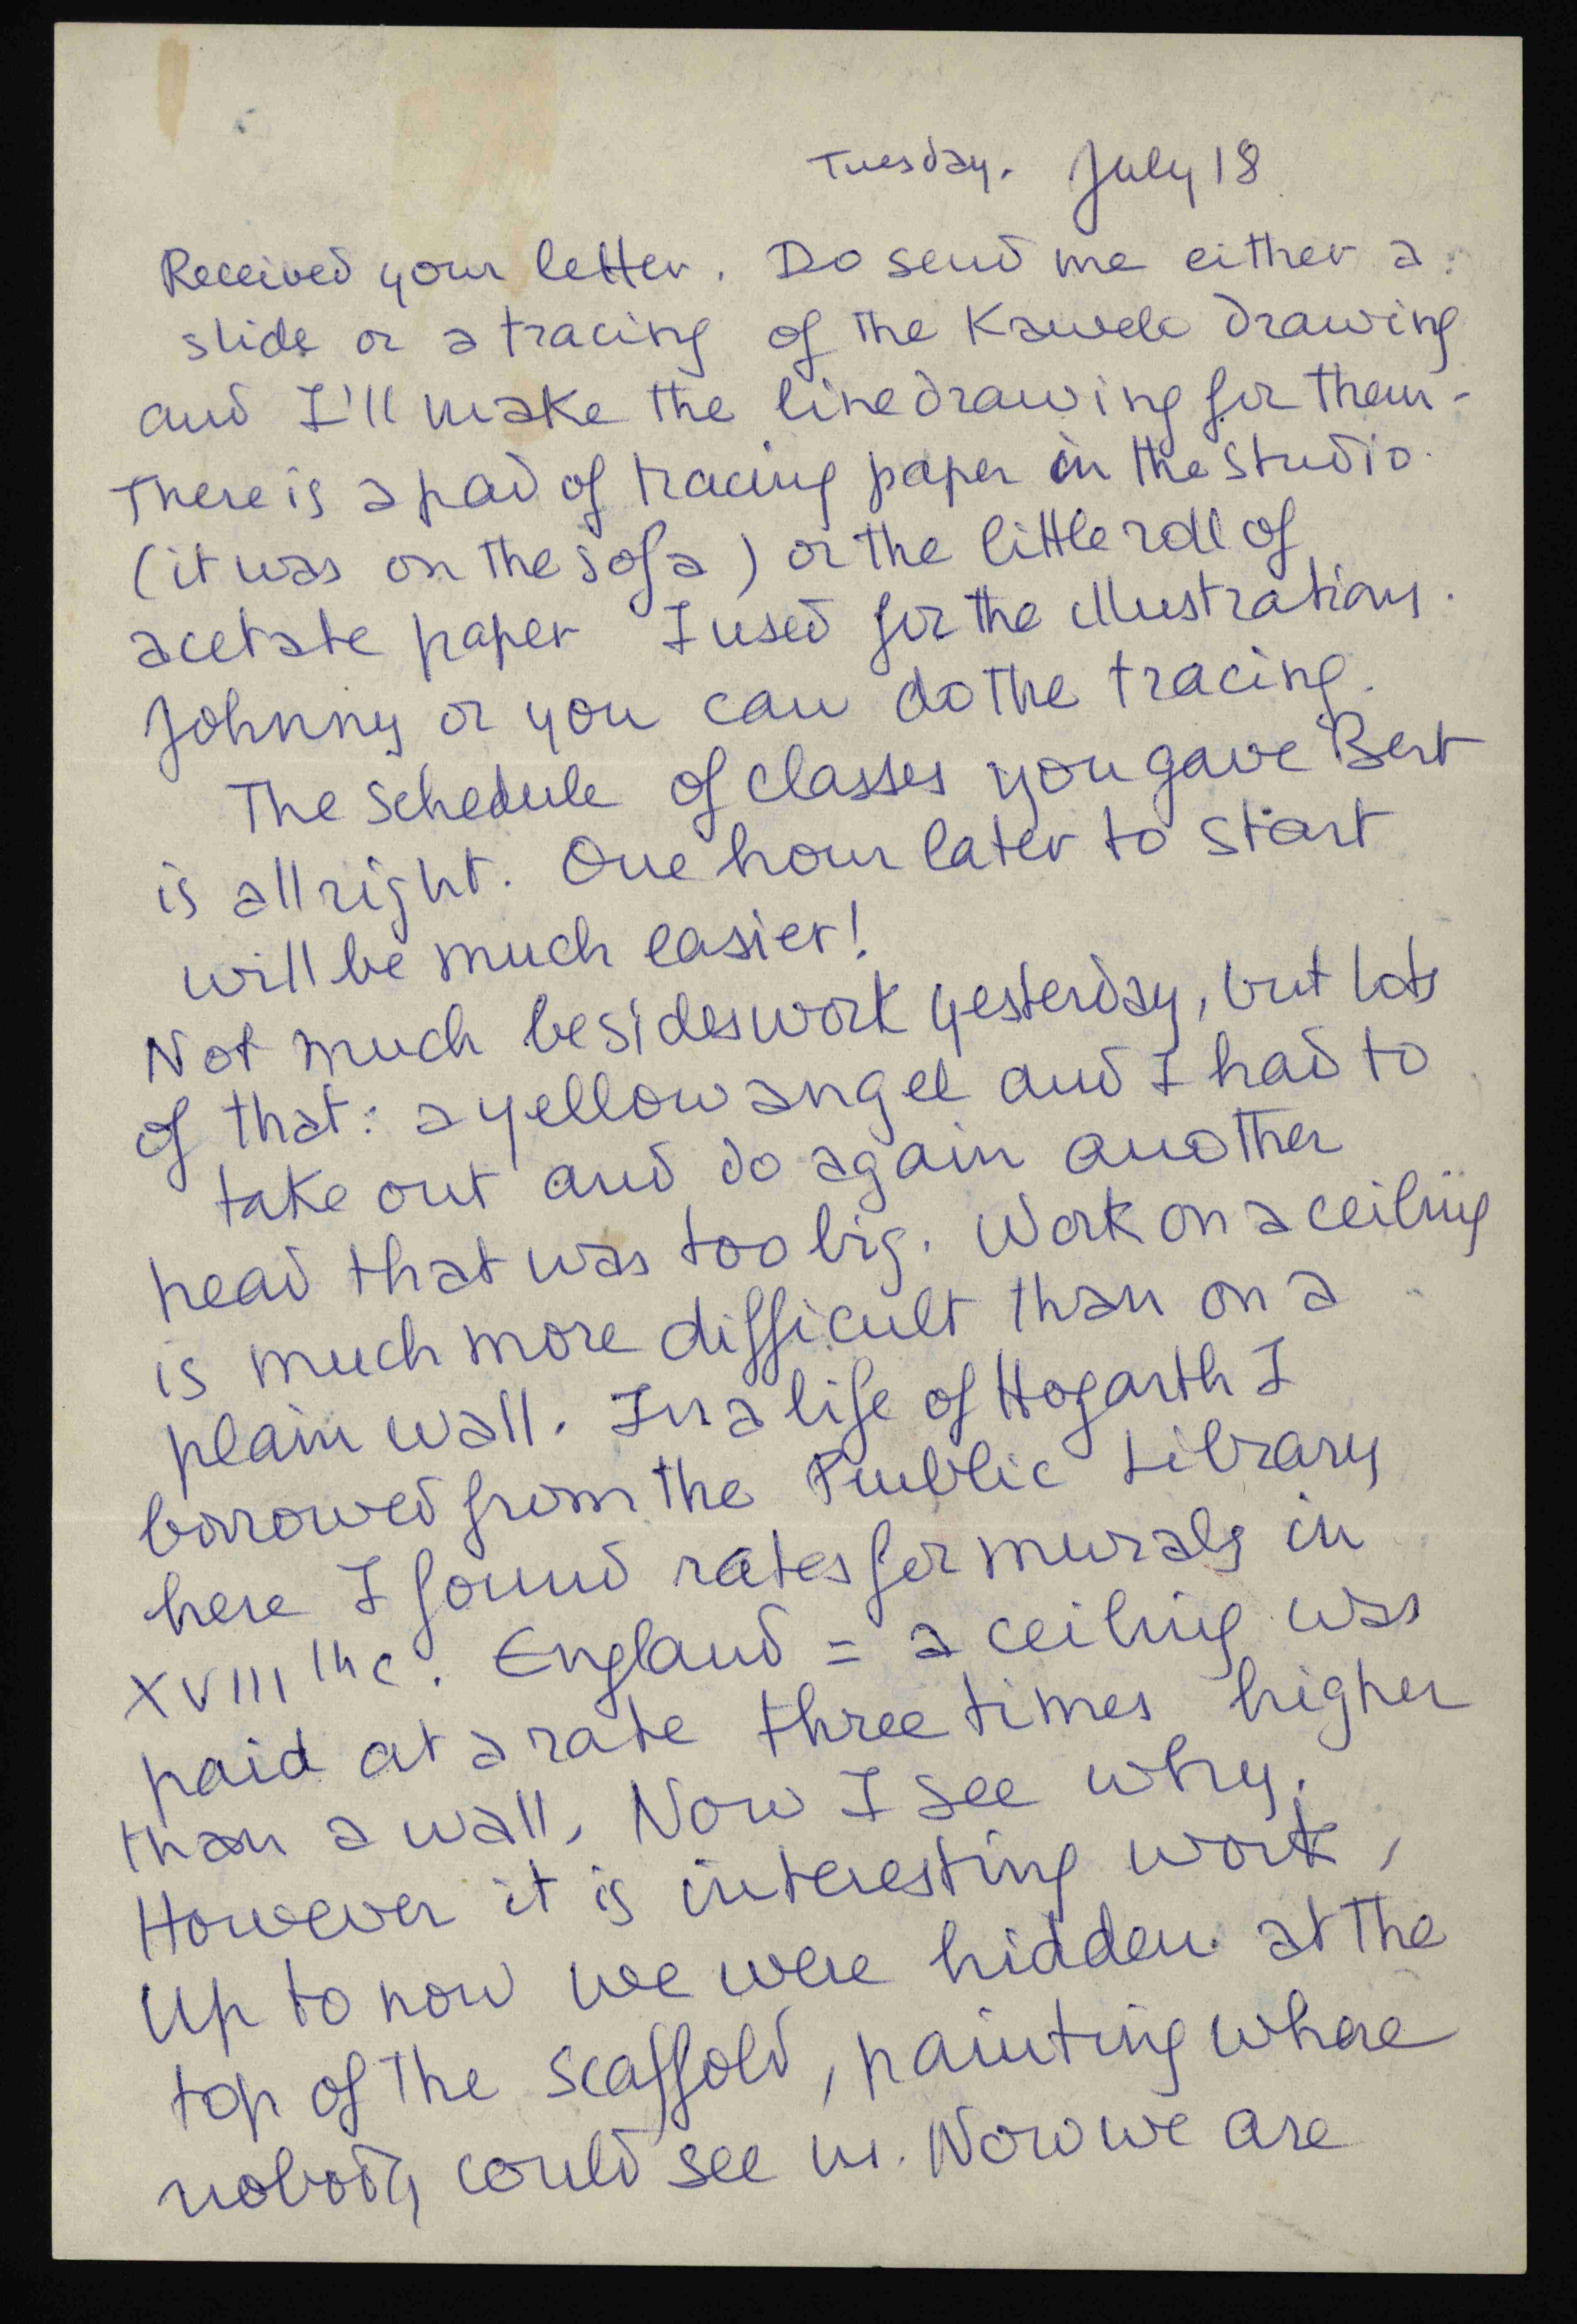 Tuesday. July 18
Received your letter. Do send me either a
slide or a tracing of the Kawelo drawing
and I'll make the line drawing for them -
There is a pad of tracing paper in the studio.
(it was on the sofa) or the little roll of
acetate paper I used for the illustrations.
Johnny or you can do the tracing.
The schedule of classes you gave Bert
is all right. One hour later to start
will be much easier!
Not much besides work yesterday, but lots
of that: a yellow angel and I had to
take out and do again another
head that was too big. Work on a ceiling
is much more difficult than on a
plain wall. In a life of Hogarth I
borrowed from the Public Library
here I found rates for murals in
XVIII th c. England = a ceiling was
paid at a rate three times higher
than a wall, Now I see why.
However it is interesting work,
Up to now we were hidden at the
top of the scaffold, painting where
nobody could see us. Now we are